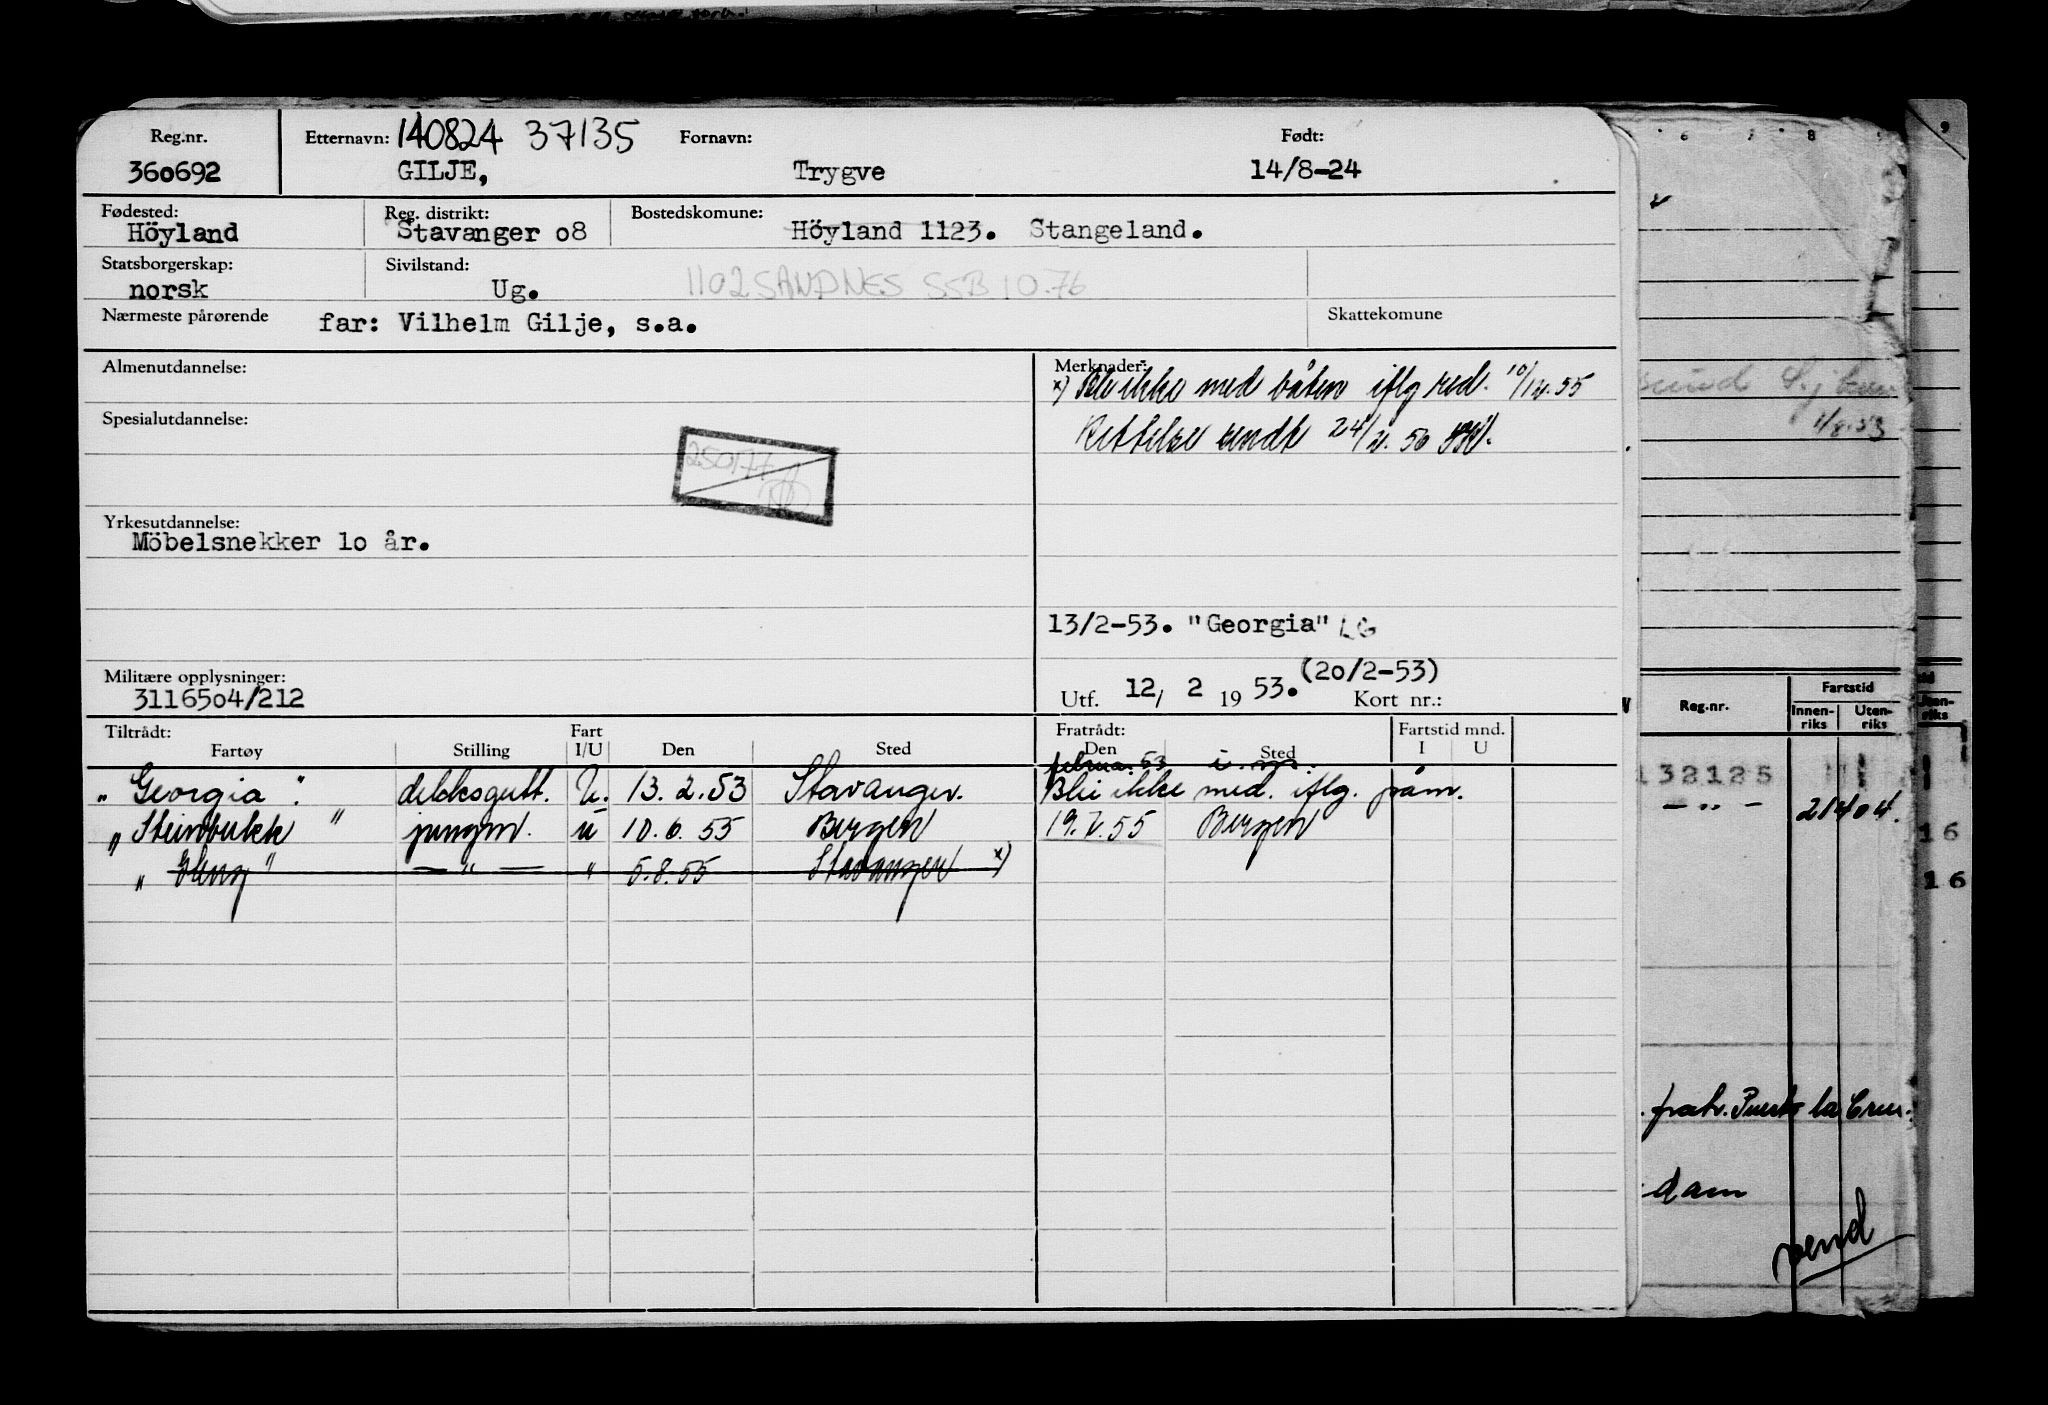 Reg.nr. Etternavn: 140824 37135 Fornavn: Født:
360692 GILJE, Trygve 14/8-24
Fødested: Reg. distrikt: Bostedskomune:
Höyland Stavanger o8 Höyland 1123. Stangeland.
Statsborgerskap: Sivilstand:
norsk Ug. 1102 SANDNES SSB 10.76
Nærmeste pårørende far: Vilhelm Gilje, s.a. Skattekomune
Almenutdannelse: Merknader:
x) Ble ikke med båten iflg red. 10/12.55
Spesialutdannelse:
Rettelse sendt 24/2.56
250177
Yrkesutdannelse:
Möbelsnekker 1o år.
13/2-53. "Georgia" LG
Militære opplysninger: (20/2-53)
3116504/212 Utf. 12/ 2 19 53. Kort nr.:
Tiltrådt: Fart Fratrådt: Fartstid mnd.
Fartøy Stilling I/U Den Sted Den Sted I U
februar 53
"Georgia". dekksgutt. U. 13.2.53 Stavanger. Ble ikke med. iflg. påm.
"Steinbukk" jungm. u 10.6.55 Bergen 19.7.55 Bergen
— " — " 5.8.55 Stavanger x)
6 7 8 9
1/8.53
Reg.nr. Fartstid
Innen-riks Uten-riks
132125
— " — 21404.
16
16
fratr. Puerto la Cruz.
dam
send